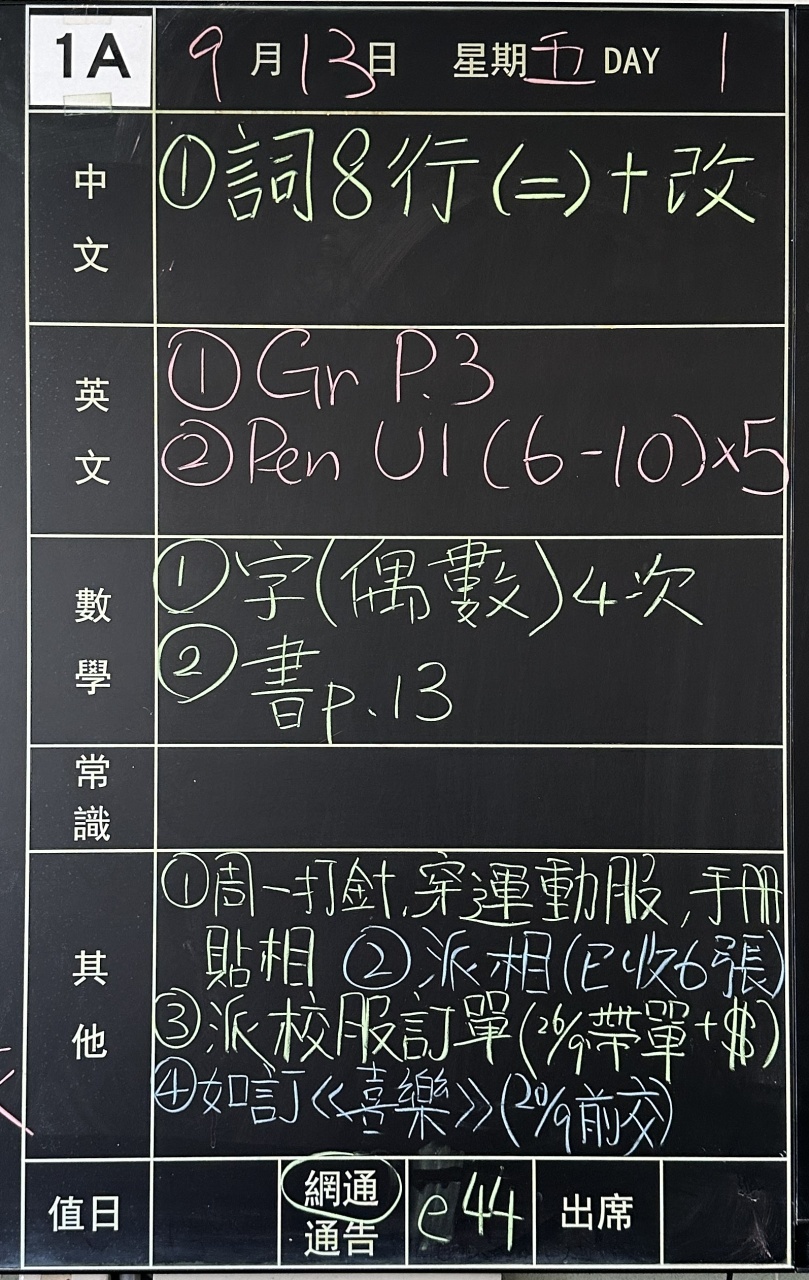 1A 9月13日 星期五 DAY 1
中文
①詞8行(二)+改
英文
①Gr P.3
②Pen U1 (6-10)×5
數學
①字(偶數)4次
②書p.13
常識
其他
①周一打針,穿運動服,手冊
貼相 ②派相(已收6張)
③派校服訂單(26/9帶單+$)
④如訂《喜樂》(20/9前交)
值日 網通 e44 出席
通告